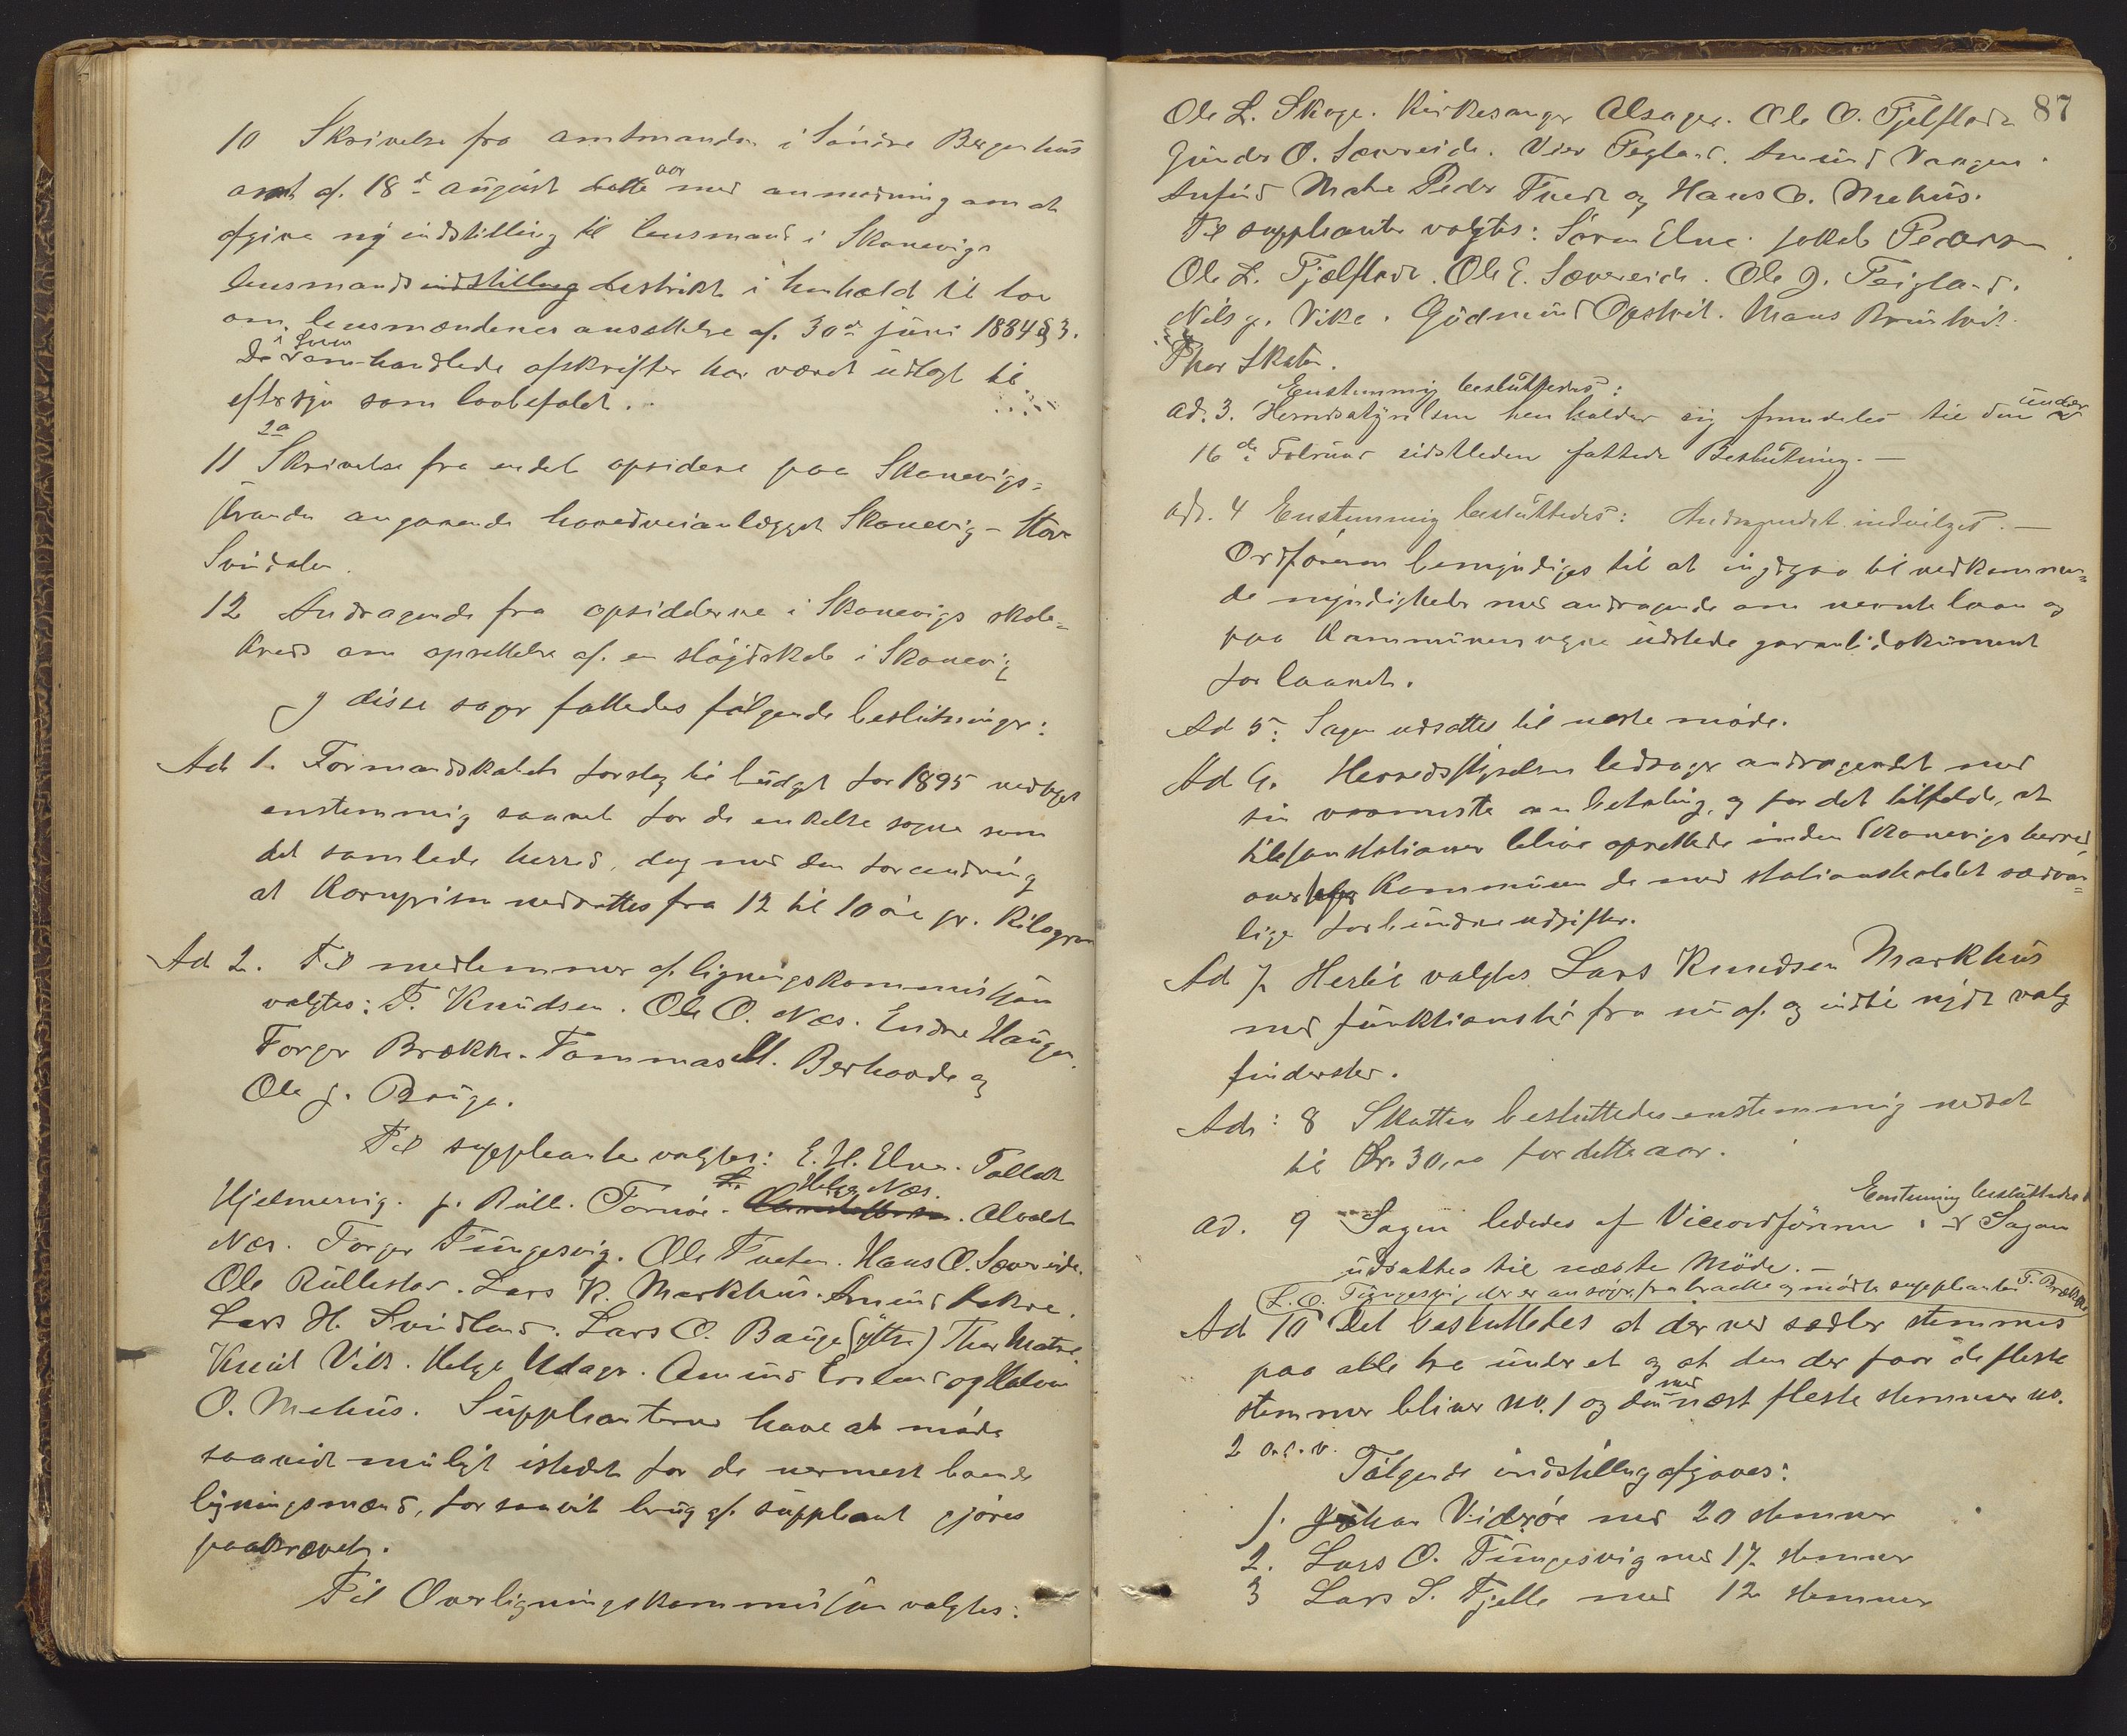 10 Skrivelse fra amtmanden i Söndre Bergenhus
amt af 18de august dette aar med anmodning om at
afgive ny indstilling til lensmand i Skonevigs
lensmandsindstilling destrikt i henhold til lov
om lensmændenes ansættelse af 30de juni 1884 § 3.
De i Svum omhandlede afskrifter har været udlagt til
eftersyn som lovbefalet.
11 Skrivelse fra endel opsidere paa Skonevigs-
stranden angaaende hovedveianlægget Skonevig - Store
Svindalen.
12 Andragende fra opsidderne i Skonevigs skole-
kreds om oprettelse af en slöjdskole i Skonevig
I disse sager fattedes fölgende beslutninger:
Ad 1. Formandskabets forslag til budget for 1895 vedtoges
enstemmig saavel for de enkelte sogne som
det samlede herred, dog med den forandring
at Kornprisen nedsattes fra 12 til 10 öre pr. Kilogram
Ad 2. Til medlemmer af ligningskommissjon
valgtes: T. Knudsen. Ole O. Næs. Endre Haugen.
Torger Brække. Tommas M. Berhovde og
Ole J. Bauge.
Til suppleanter valgtes: E. H. Elne. Tollak
Helge Næs.
Hjelmervig. J. Rull. Tornöe. Alvald
Næs. Torger Tungesvig. Ole Tveten. Hans O. Sævereide.
Ole Rullestad. Lars K. Markhus. Amund Aakre.
Lars H. Svindland. Lars O. Bauge (yttre) Thor Matre.
Knut Vik. Helge Udager. Amund Eosland og Halvor
O. Mehus. Suppleanterne have at möde
saavidt muligt istedet for de nermest boende
ligningsmænd, forsaavit brug af suppleant gjöres
paakrævet.
Til Overligningskommissjon valgtes:
87
Ole L. Skoge. Kirkesanger Alsager. Ole O. Fjelstad
Gunder O. Sævereide. Vier Tegland. Amund Vaagen.
Anfind Matre Peder Tvedt og Hans O. Mehus.
Til suppleanter valgtes: Sören Elne. Jakob Pedersen
Ole L. Fjælstad. Ole E. Sævereide. Ole J. Teigland.
Nils J. Vike. Gudmund Opsvit. Mons Bruntvit.
Thor Skaten.
Enstemmig besluttedes:
ad. 3. Herredsstyrelsen henholder sig fremdeles til den under
16de Februar sidstleden fattede Beslutning. —
ad. 4 Enstemmig besluttedes: Andragendet indvilges. —
Ordföreren bemyndiges til at indgaa til vedkommen-
de myndigheder med andragende om nevnte laan og
paa Kommunens vegne udstede garantidokument
for laanet.
Ad 5: Sagen udsattes til neste möde.
Ad 6. Herredsstyrelsen ledsager andragendet med
sin varmeste anbefaling, og for det tilfelde, at
telefonstationer blive oprettede inden Skonevigs herred,
overtager Kommunen de med stationsholdet sædvan-
lige forbundne udgifter.
Ad 7 Hertil valgtes Lars Knudsen Markhus
med funktionstid fra nu af og indtil nydt valg
finder sted.
Ad: 8 Skatten besluttedes enstemmig nedsat
til Kr. 30,00 for dette aar.
Enstemmig besluttedes
ad. 9 Sagen lededes af Viceordföreren. Sagen
udsattes til næste Möde. —
L. O. Tungesvig, der er ansöger, fratraadte og mödte suppleanten T. Brække
Ad 10 Det besluttedes at der ved sedler stemmes
paa alle tre under et og at den der faar de fleste
stemmer bliver no. 1 og den med næst fleste stemmer no.
2 o. s. v.
Fölgende indstilling afgaves:
1. Johan Videröe med 20 stemmer
2. Lars O. Tungesvig med 17 stemmer
3 Lars S. Fjelle med 12 stemmer